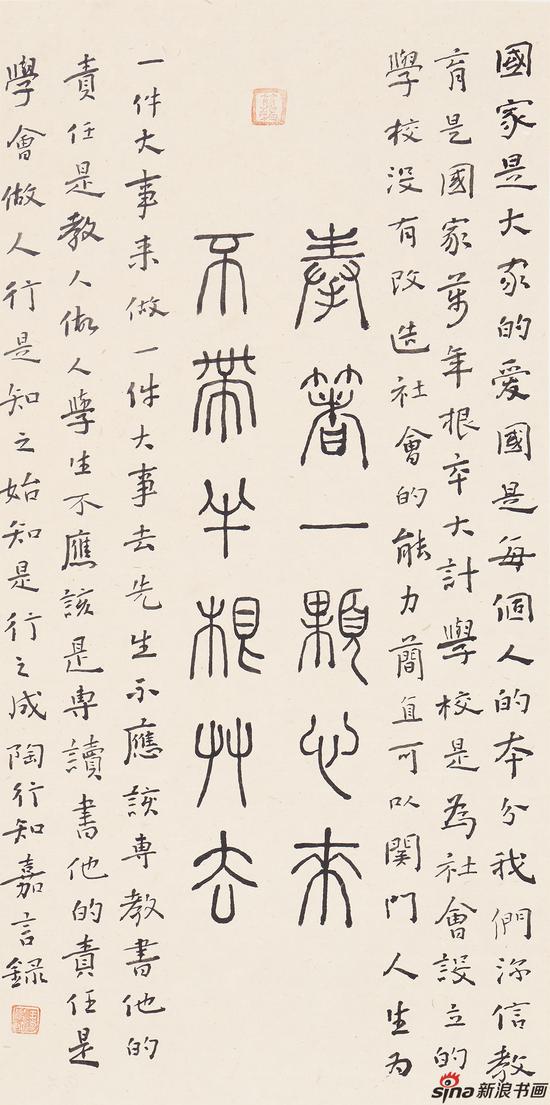 國家是大家的愛國是每個人的本分我們深信教
育是國家萬年根本大計學校是為社會設立的
學校沒有改造社會的能力簡直可以関門人生為
奉箸一顆心來
不帶半根艸去
一件大事来做一件大事去先生不應該専教書他的
責任是教人做人學生不應該是専讀書他的責任是
學會做人行是知之始知是行之成陶行知嘉言録
sina新浪书画